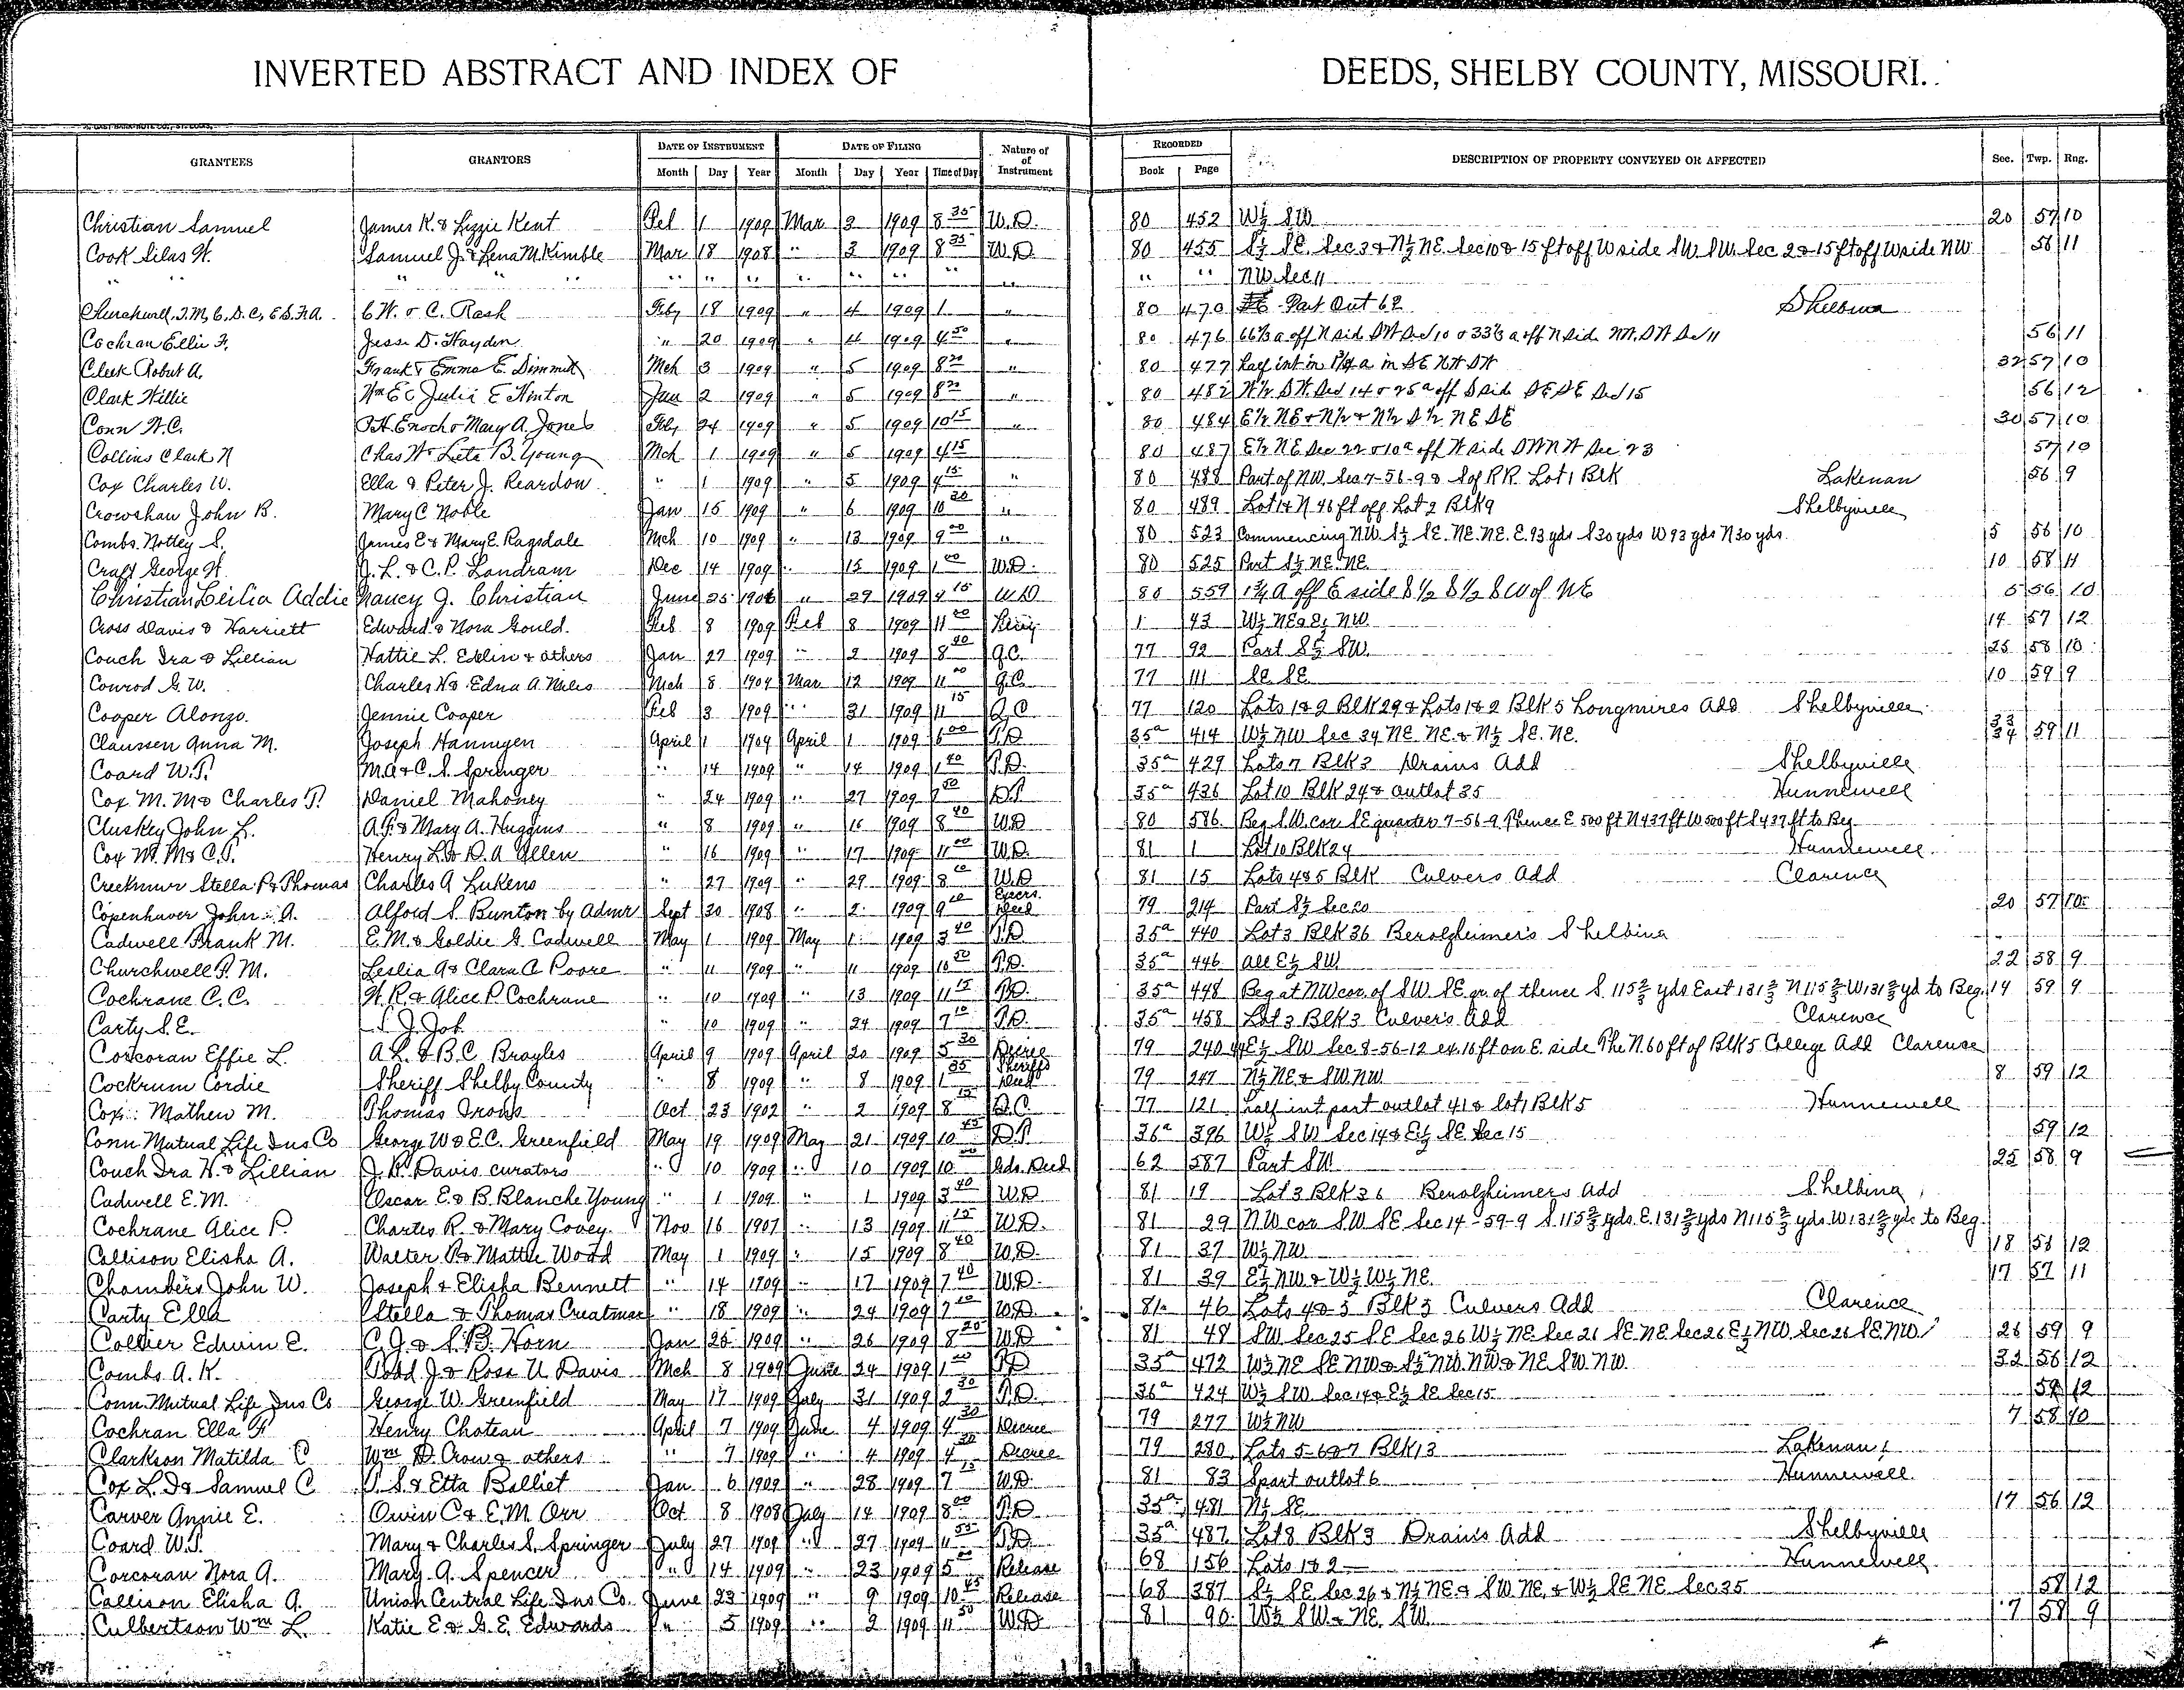 INVERTED ABSTRACT AND INDEX OF DEEDS, SHELBY COUNTY, MISSOURI.
GRANTEES GRANTORS DATE OF INSTRUMENT DATE OF FILING Nature of Instrument RECORDED DESCRIPTION OF PROPERTY CONVEYED OR AFFECTED Sec. Twp. Rng.
Month Day Year Month Day Year Time of Day Book Page
Christian Samuel James K. & Lizzie Kent Feb 1 1909 Mar 3 1909 8 35 W.D. 80 452 W½ SW 20 57 10
Cook Silas H. Samuel J. & Lena M. Kimble Mar 18 1908 " 3 1909 8 35 W.D 80 455 S½ SE. Sec 3 & N½ NE Sec 10 & 15 ft off W side SW SW. Sec 2 & 15 ft off W side NW 56 11
" " " " " " " " " " " " " NW Sec 11
Churchwell, C. Rash Feby 18 1909 " 4 1909 1 " 80 470 Part Out 62 Shelbina
Cochran Ellis F. Jesse D. Hayden " 20 1909 " 4 1909 4 50 " 80 476 56 11
Cleek Robert A. Frank & Emma E. Dimmitt Mch 3 1909 " 5 1909 8 20 " 80 477 32 57 10
Clark Willie Wm E & Julia E Hinton Jan 2 1909 " 5 1909 8 20 " 80 482 56 12
Conn H.C. Enoch & Mary A. Jones Feby 24 1909 " 5 1909 10 15 " 80 484 E½ NE & N½ & N½ S½ NE SE 30 57 10
Collins Clark N Chas W & Leta B. Young Mch 1 1909 " 5 1909 4 15 " 80 487 E½ NE Sec 22 & 10 a off W side SW NW Sec 23 57 10
Cox Charles W. Ella & Peter J. Reardon " 1 1909 " 5 1909 4 15 " 80 488 Part of NW. Sec 7-56-9 & S of RR. Lot 1 Blk Lakenan 56 9
Crowshaw John B. Mary C Noble Jan 15 1909 " 6 1909 10 20 " 80 489 Lot 1 & N 46 ft off Lot 2 Blk 9 Shelbyville
Combs. Notley S. James E & Mary E. Ragsdale Mch 10 1909 " 13 1909 9 00 " 80 523 Commencing N.W. S½ SE. NE. NE. E. 93 yds S 30 yds W 93 yds N 30 yds. 5 56 10
Craft George H. J. L. & C. P. Landram Dec 14 1909 " 15 1909 1 00 W.D. 80 525 Part S½ NE. NE 10 58 11
Christian Leilia Addie Nancy J. Christian June 25 1906 " 29 1909 4 15 W D 80 559 1¾ A off E side S ½ S ½ SW of NE 5 56 10
Cross Davis & Harriett Edward & Nora Gould. Feb 8 1909 Feb 8 1909 11 20 1 43 W½ NE & E½ NW 14 57 12
Couch Ira & Lillian Hattie L. Edelin & others Jan 27 1909 " 2 1909 8 40 Q.C. 77 92 Part S½ SW. 25 58 10
Conrod G. W. Charles H & Edna A. Niles Mch 8 1909 Mar 12 1909 11 00 Q.C 77 111 SE SE 10 59 9
Cooper Alonzo. Jennie Cooper Feb 3 1909 " 31 1909 11 15 Q.C 77 120 Lots 1 & 2 Blk 29 & Lots 1 & 2 Blk 5 Longmires Add Shelbyville
Claussen Anna M. Joseph Hanmgen April 1 1909 April 1 1909 6 00 T.D 35a 414 W½ NW Sec 34 NE. NE. & N½ SE. NE. 33 34 59 11
Coard W.T. M.A & C. S. Springer " 14 1909 " 14 1909 1 40 T.D. 35a 429 Lots 7 Blk 3 Drains Add Shelbyville
Cox M. M & Charles T. Daniel Mahoney " 24 1909 " 27 1909 7 50 D.T 35a 436 Lot 10 Blk 24 & outlot 35 Hunnewell
Cluskey John L. A. F. & Mary A. Huggins " 8 1909 " 16 1909 8 40 W.D 80 586 Beg. S.W. cor SE quarter 7-56-9 Thence E 500 ft N 437 ft W 500 ft S 437 ft to Beg
Cox M. M & C. T. Henry L. & D. A Allen " 16 1909 " 17 1909 11 00 W.D. 81 1 Lot 10 Blk 24 Hunnewell.
Creekmur Stella P. & Thomas Charles A Lukens " 27 1909 " 29 1909 8 10 W.D 81 15 Lots 4 & 5 Blk Culvers Add Clarence
Copenhaver John A. Alford S. Bunton by Admr Sept 30 1908 " 2 1909 9 10 Execs. Deed 79 214 Part S½ Sec 20 20 57 10
Cadwell Frank M. E. M. & Goldie G. Cadwell May 1 1909 May 1 1909 3 40 T.D 35a 440 Lot 3 Blk 36 Berolzheimer's Shelbina
Churchwell T. M. Leslia A & Clara A Poore " 11 1909 " 11 1909 10 50 T.D. 35a 446 All E½ SW 22 58 9
Cochrane C. C. H. R. & Alice P. Cochrane " 10 1909 " 13 1909 11 15 T.D. 35a 448 Beg at NW cor. of SW SE qr. of thence S. 115⅔ yds East 131⅔ N 115⅔ W 131⅔ yd to Beg. 14 59 9
Carty S. E. S. J. Job " 10 1909 " 24 1909 7 10 T.D. 35a 458 Lot 3 Blk 3 Culver's Add Clarence
Corcoran Effie L. A. L. & B. C. Broyles April 9 1909 April 20 1909 5 30 Decree 79 240 E½ SW Sec 8-56-12 ex. 16 ft on E. side The N. 60 ft of Blk 5 College Add Clarence
Cockrum Cordie Sheriff Shelby County " 8 1909 " 8 1909 1 35 Sheriffs Deed 79 247 N½ NE & SW. NW. 8 59 12
Cox Mathew M. Thomas Irons Oct 23 1902 " 2 1909 8 15 Q.C. 77 121 half int part outlot 41 & lot 1 Blk 5 Hunnewell
Conn Mutual Life Ins Co George W & E.C. Greenfield May 19 1909 May 21 1909 10 45 D.T. 36a 396 W½ SW Sec 14 & E½ SE Sec 15 59 12
Couch Ira H. & Lillian J. P. Davis curators " 10 1909 " 10 1909 10 00 Gds. Deed 62 587 Part SW 25 58 9
Cadwell E.M. Oscar E. & B. Blanche Young " 1 1909 " 1 1909 3 40 W.D. 81 19 Lot 3 Blk 36 Berolzheimers Add Shelbina
Cochrane Alice P. Charles R. & Mary Covey Nov 16 1907 " 13 1909 11 15 W.D. 81 29 N.W cor SW SE Sec 14-59-9 S 115⅔ yds. E. 131⅔ yds N 115⅔ yds. W. 131⅔ yds to Beg.
Collison Elisha A. Walter P. & Mattie Wood May 1 1909 " 15 1909 8 40 W.D. 81 37 W½ NW 18 58 12
Chambers John W. Joseph & Elisha Bennett " 14 1909 " 17 1909 7 40 W.D. 81 39 E½ NW & W½ W½ NE. 17 57 11
Carty Ella Stella & Thomas Creatmar " 18 1909 " 24 1909 7 10 W.D. 81 46 Lots 4 & 5 Blk 5 Culvers Add Clarence
Collier Edwin E. C. J. & S. B. Horn Jan 25 1909 " 26 1909 8 20 W.D 81 48 SW Sec 25 SE Sec 26 W½ NE Sec 26 SE. NE Sec 26 E½ NW. Sec 26 SE. NW. 26 59 9
Combs A. K. Todd J. & Rosa U. Davis Mch 8 1909 June 24 1909 1 00 T.D 35a 472 W½ NE SE NW & S½ NW. NW & NE SW. NW. 32 56 12
Conn Mutual Life Ins Co George W. Greenfield May 17 1909 July 31 1909 2 30 T.D. 36a 424 W½ SW Sec 14 & E½ SE Sec 15 59 12
Cochran Ella F. Henry Choteau April 7 1909 June 4 1909 4 30 Decree 79 277 W½ NW 7 58 10
Clarkson Matilda C Wm D. Crow & others " 7 1909 " 4 1909 4 30 Decree 79 280 Lots 5-6 & 7 Blk 13 Lakenan
Cox L. D & Samuel C S & Etta Balliet Jan 6 1909 " 28 1909 7 15 W.D. 81 83 S part outlot 6 Hunnewell
Carver Annie E. Owin C & E.M Orr Oct 8 1908 July 14 1909 8 00 T.D 35a 481 N½ SE 17 56 12
Coard W.T. Mary & Charles S. Springer July 27 1909 " 27 1909 11 55 T.D. 35a 487 Lot 8 Blk 3 Drains Add Shelbyville
Corcoran Nora A. Mary A. Spencer " 14 1909 " 23 1909 5 00 Release 68 156 Lots 1 & 2 Hunnewell
Collison Elisha A. Union Central Life Ins Co. June 23 1909 " 9 1909 10 45 Release 68 387 S½ SE Sec 26 & N½ NE & SW NE. & W½ SE NE Sec 35 58 12
Culbertson Wm L. Katie E & G. E. Edwards " 5 1909 " 2 1909 11 50 W.D. 81 90 W½ SW & NE. SW. 7 58 9